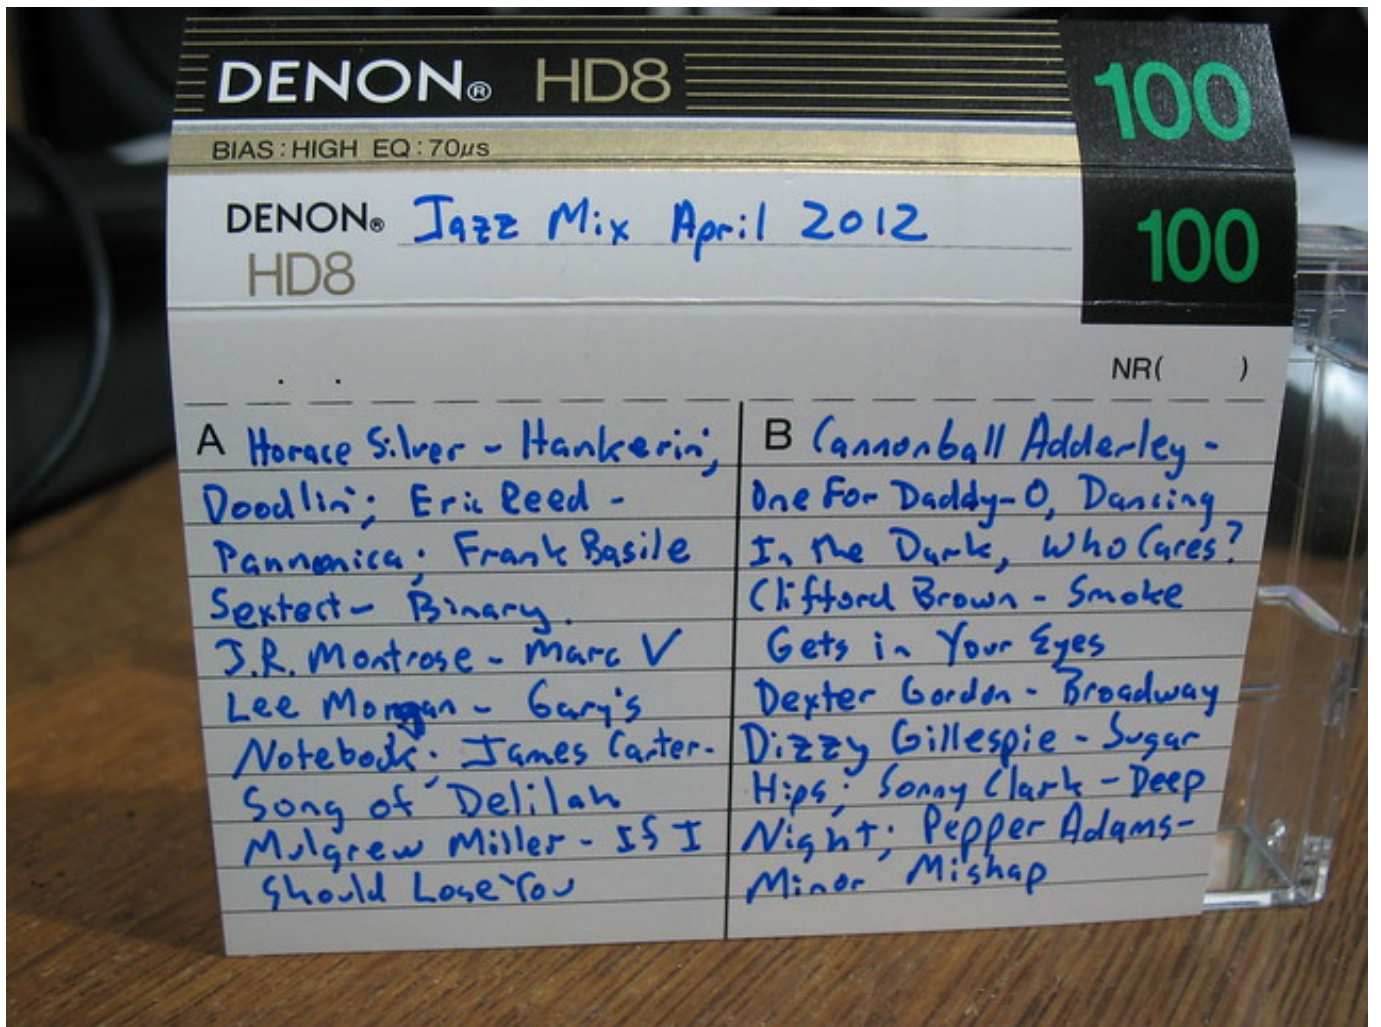 DENON® HD8 100
BIAS : HIGH EQ : 70µs
DENON® Jazz Mix April 2012 100
HD8
NR( )
A Horace Silver - Hankerin',
Doodlin'; Eric Reed -
Pannonica; Frank Basile
Sextect - Binary.
J.R. Montrose - Marc V
Lee Morgan - Gary's
Notebook; James Carter-
Song of Delilah
Mulgrew Miller - IS I
Should Lose You
B Cannonball Adderley -
One For Daddy-O, Dancing
In the Dark, Who Cares?
Clifford Brown - Smoke
Gets in Your Eyes
Dexter Gordon - Broadway
Dizzy Gillespie - Sugar
Hips; Sonny Clark - Deep
Night; Pepper Adams-
Minor Mishap